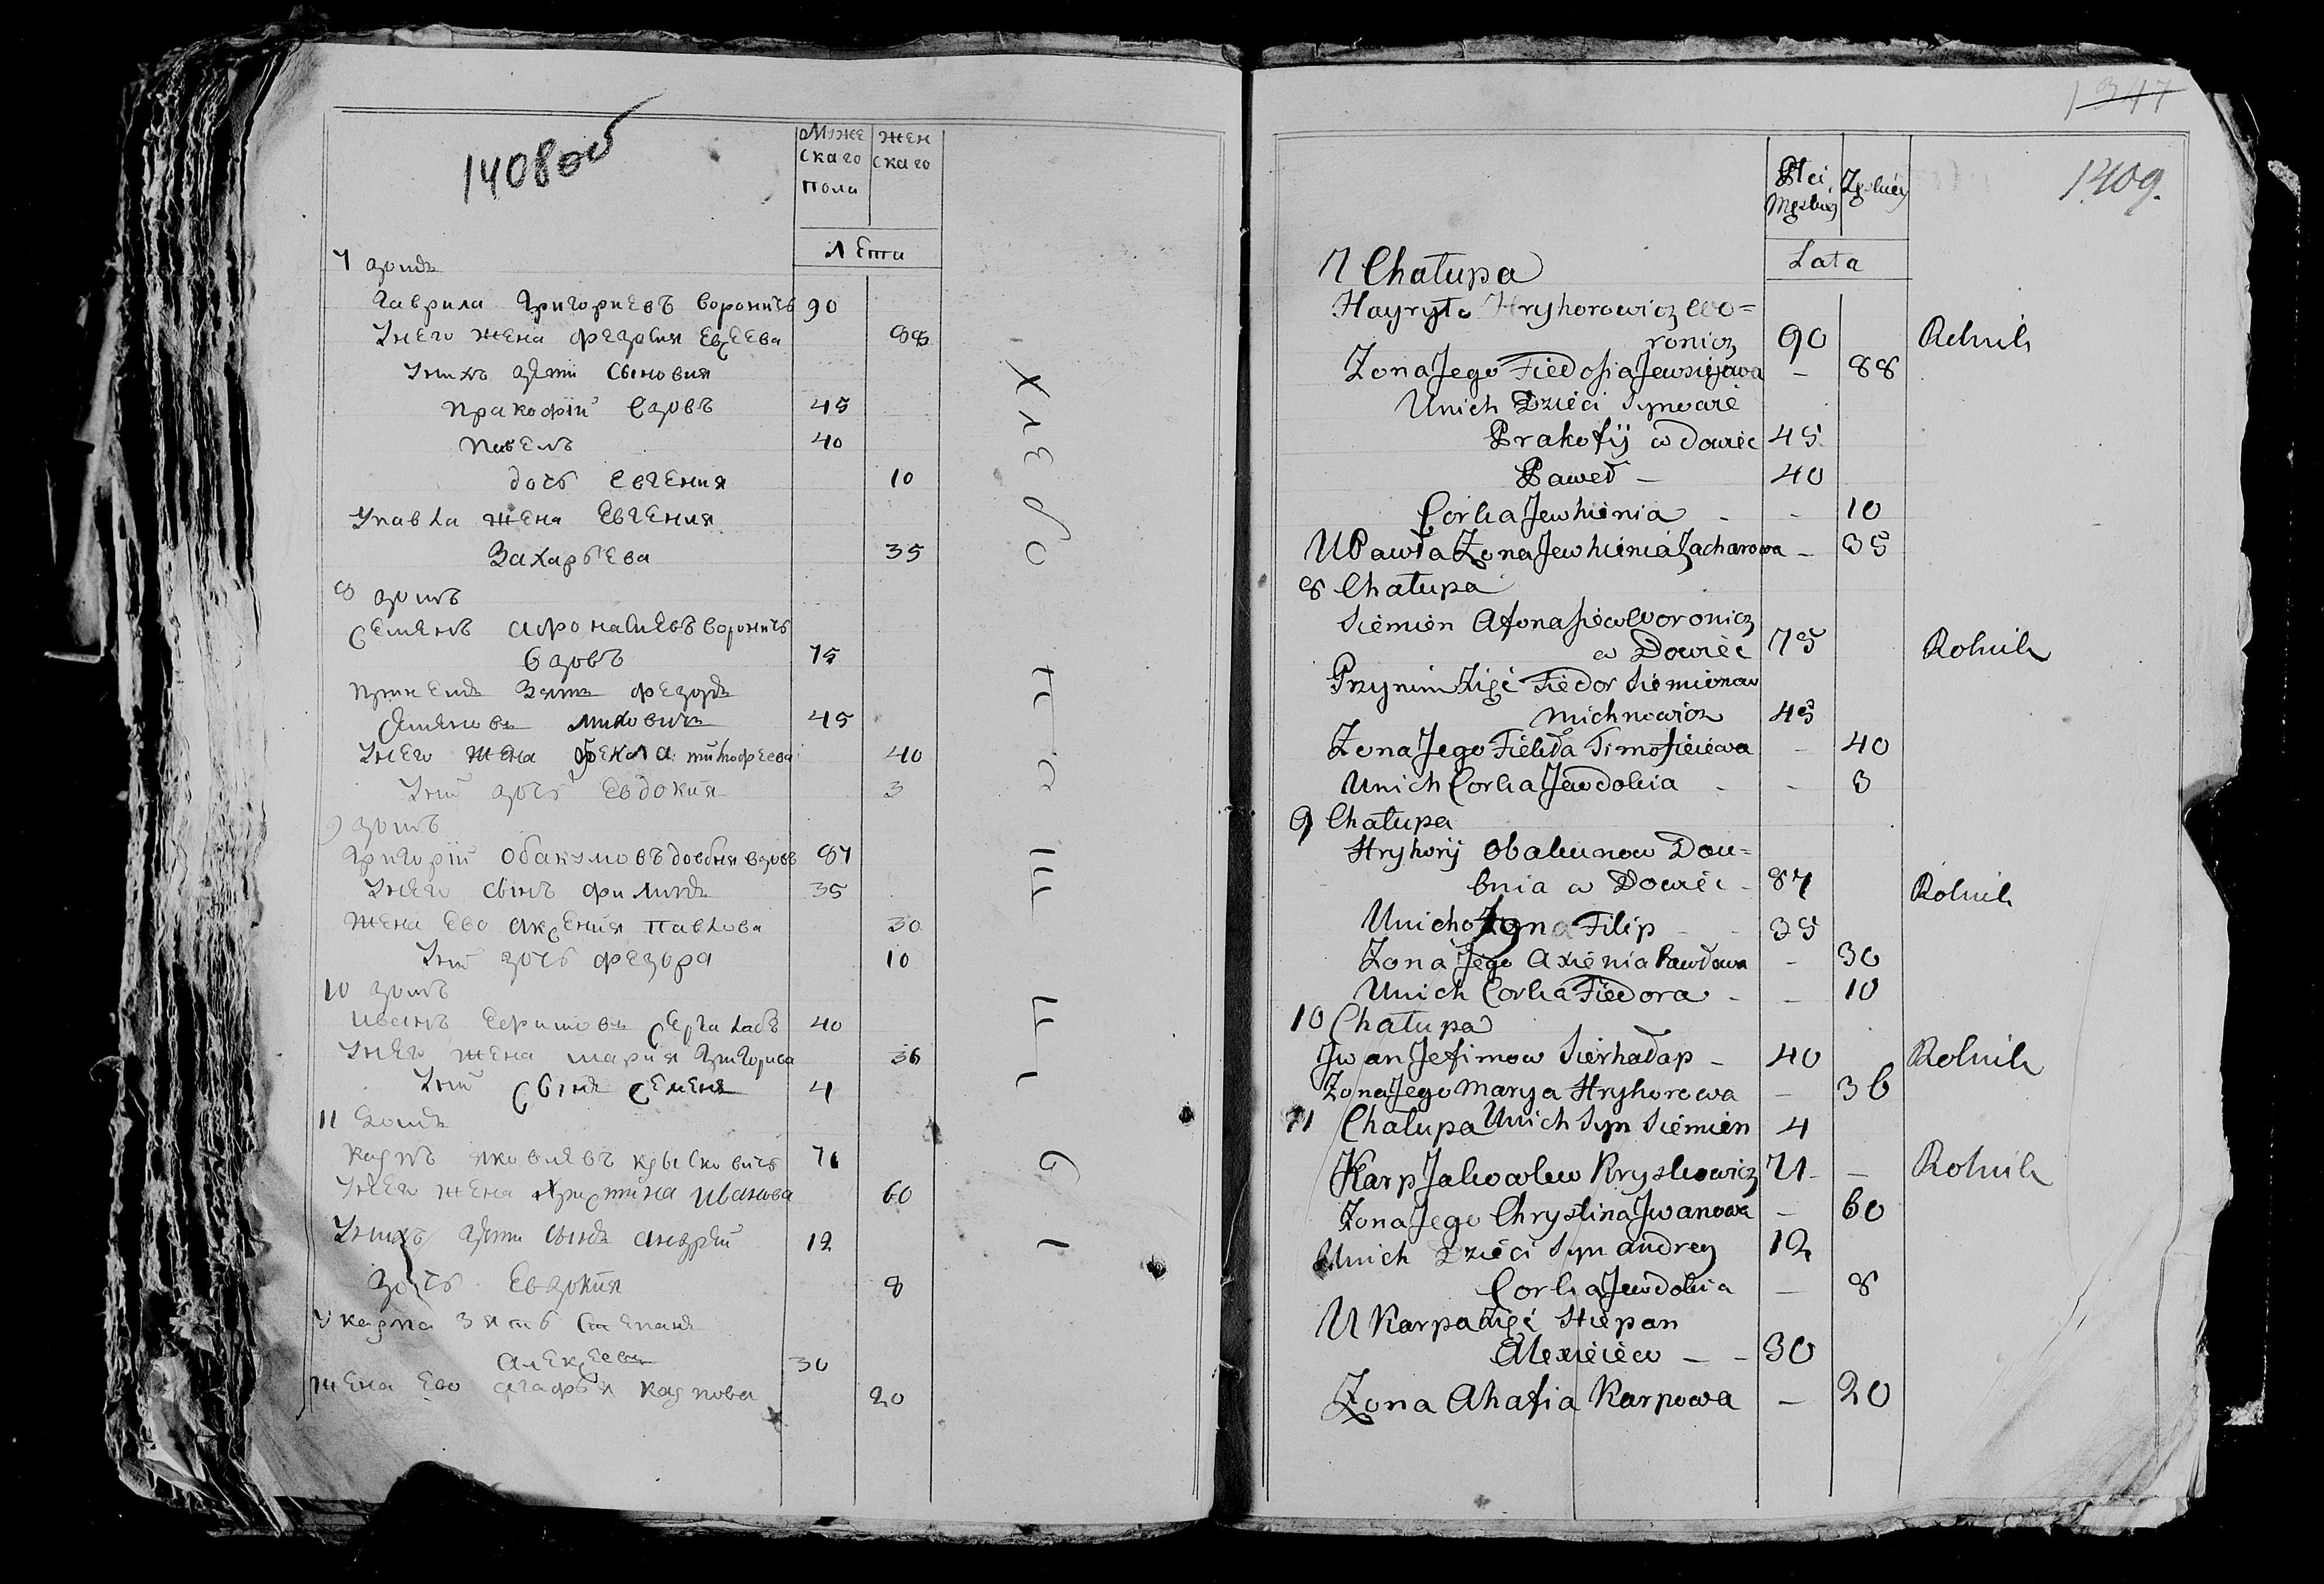 1408 об
Муже Жен
скаго скаго
пола
Лета
7 домъ
Гаврила Григориевъ Вороничъ 90
Унего жена Федосия Евсеева 88
Унихъ дети сыновия
Пракофiй вдовъ 45
Павелъ 40
дочь Евгения 10
Упавла жена Евгения
Захарьева 35
8 домъ
Семенъ Афонасиевъ Вороничъ
вдовъ 75
Принемъ Зять Федоръ
Семеновъ Михновичъ 45
Унего жена Фекла тимофеева 40
Уних дочь Евдокия 3
9 домъ
Григорiй Обакумовъ довбня вдовъ 87
Унего сынъ Филипъ 35
Жена Ево Аксения Павлова 30
Уних дочь Федора 10
10 домъ
Иванъ Ефимовъ Сергалапъ 40
Унего жена Мария Григорива 36
Уних Сынъ Семенъ 4
11 домъ
Карпъ Яковлевъ Крысковичъ 71
Унего жена Христина Иванова 60
Унихъ дети сынъ Андрей 12
дочь Евдокия 8
Укарпа зять Степанъ
Алексеевъ 30
жена Ево Агафья Карпова 20
Хлэбо
П
а
ш
ц
1347
1409.
Płci Żeńskiéy
Męskiey
Lata
7 Chałupa
Hayryło Hryhorowicz Wo=
ronicz 90 Rolnik
Żona Jego Fiedosia Jewsiejowa – 88
Unich Dzieci Synowie
Prakofij wdowiec 45
Paweł – 40
Corka Jewhienia – – 10
U Pawła Żona Jewhienia Zacharowa – 35
8 Chałupa
Siemien Afonasiew Woronicz
w Dowiec 75 Rolnik
Przynim Zięć Fiedor Siemionow
Michnowicz 45
Żona Jego Fiekła Timofieiewa – 40
Unich Corka Jewdokia – – 3
9 Chałupa
Hryhorij Obakumow Dow=
bnia w Dowiec – 87 Rolnik
Unicho Syn Filip – – 35
Żona Jego Axienia Pawłowa – 30
Unich Corka Fiedora – – 10
10 Chałupa
Jwan Jefimow Sierhałap – 40 Rolnik
Żona Jego Marya Hryhorowa – 36
11 Chałupa Unich Syn Siemien 4
Karp Jakowlew Kryskowicz 71 – Rolnik
Żona Jego Chrystina Jwanowa – 60
Unich Dzieci Syn Andrey 12
Corka Jewdokia – 8
U Karpa Zięć Stiepan
Alexieiew – – 30
Żona Ahafia Karpowa – 20